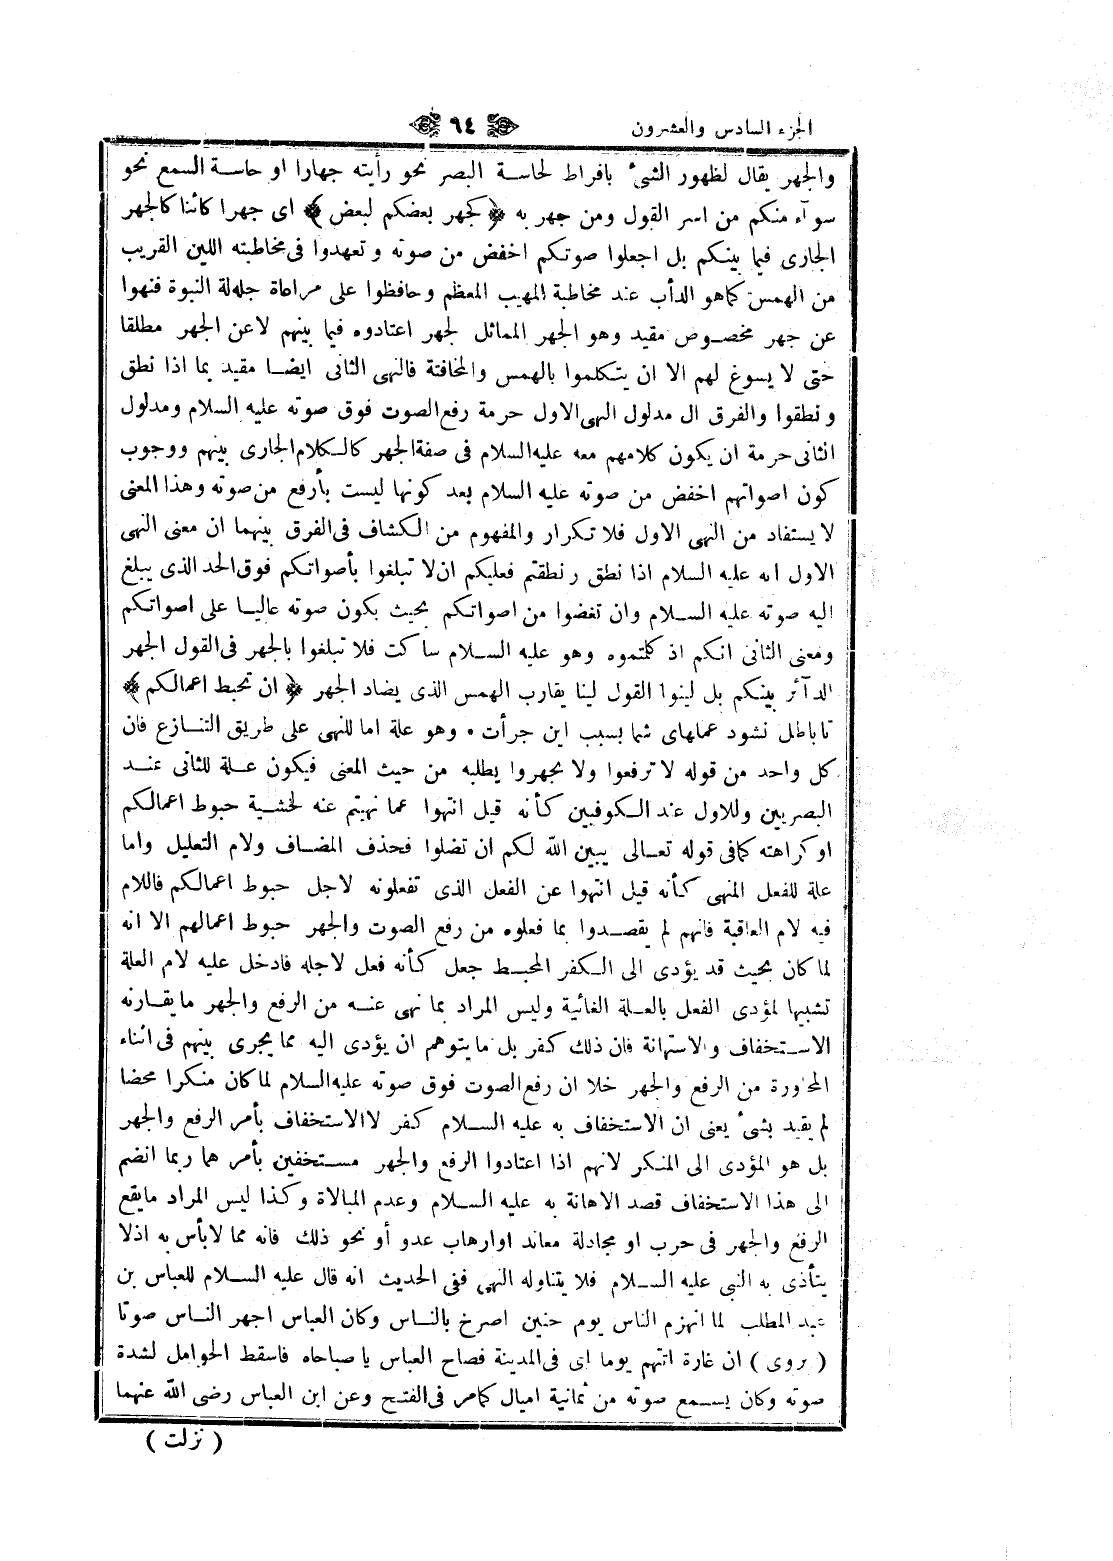 الجزء السادس والعشرون
٦٤
والجهر يقال لظهور الشئ بافراط لحاسة البصر نحو رأيته جهارا او حاسة السمع نحو
سوآء منكم من اسر القول ومن جهر به ﴿ كجهر بعضكم لبعض ﴾ اى جهرا كائنا كالجهر
الجارى فيما بينكم بل اجعلوا صوتكم اخفض من صوته وتعهدوا فى مخاطبته اللين القريب
من الهمس كماهو الدأب عند مخاطبة المهيب المعظم وحافظوا على مراعاة جلالة النبوة فنهوا
عن جهر مخصوص مقيد وهو الجهر المماثل لجهر اعتادوه فيما بينهم لاعن الجهر مطلقا
حتى لا يسوغ لهم الا ان يتكلموا بالهمس والمخافتة فالنهى الثانى ايضا مقيد بما اذا نطق
ونطقوا والفرق ال مدلول النهى الاول حرمة رفع الصوت فوق صوته عليه السلام ومدلول
الثانى حرمة ان يكون كلامهم معه عليه السلام فى صفة الجهر كالكلام الجارى بينهم ووجوب
كون اصواتهم اخفض من صوته عليه السلام بعد كونها ليست بأرفع من صوته وهذا المعنى
لا يستفاد من النهى الاول فلا تكرار والمفهوم من الكشاف فى الفرق بينهما ان معنى النهى
الاول انه عليه السلام اذا نطق ونطقتم فعليكم ان لا تبلغوا بأصواتكم فوق الحد الذى يبلغ
اليه صوته عليه السلام وان تغضوا من اصواتكم بحيث يكون صوته عاليا على اصواتكم
ومعنى الثانى انكم اذ كلمتموه وهو عليه السلام ساكت فلا تبلغوا بالجهر فى القول الجهر
الدآئر بينكم بل لينوا القول لينا يقارب الهمس الذى يضاد الجهر ﴿ ان تحبط اعمالكم ﴾
تا باطل نشود عملهاى شما بسبب اين جرأت • وهو علة اما للنهى على طريق التنازع فان
كل واحد من قوله لا ترفعوا ولا تجهروا يطلبه من حيث المعنى فيكون علة للثانى عند
البصريين وللاول عند الكوفيين كأنه قيل انتهوا عما نهيتم عنه لخشية حبوط اعمالكم
او كراهته كمافى قوله تعالى يبين الله لكم ان تضلوا فحذف المضاف ولام التعليل واما
علة للفعل المنهى كأنه قيل انتهوا عن الفعل الذى تفعلونه لاجل حبوط اعمالكم فاللام
فيه لام العاقبة فانهم لم يقصدوا بما فعلوه من رفع الصوت والجهر حبوط اعمالهم الا انه
لما كان بحيث قد يؤدى الى الكفر المحبط جعل كأنه فعل لاجله فادخل عليه لام العلة
تشبيها لمؤدى الفعل بالعلة الغائية وليس المراد بما نهى عنه من الرفع والجهر ما يقارنه
الاستخفاف والاستهانة فان ذلك كفر بل ما يتوهم ان يؤدى اليه مما يجرى بينهم فى اثناء
المحاورة من الرفع والجهر خلا ان رفع الصوت فوق صوته عليه السلام لما كان منكرا محضا
لم يقيد بشئ يعنى ان الاستخفاف به عليه السلام كفر لاالاستخفاف بأمر الرفع والجهر
بل هو المؤدى الى المنكر لانهم اذا اعتادوا الرفع والجهر مستخفين بأمر هما ربما انضم
الى هذا الاستخفاف قصد الاهانة به عليه السلام وعدم المبالاة وكذا ليس المراد مايقع
الرفع والجهر فى حرب او مجادلة معاند اوارهاب عدو أو نحو ذلك فانه مما لابأس به اذلا
يتأذى به النبى عليه السلام فلا يتناوله النهى ففى الحديث انه قال عليه السلام للعباس بن
عبد المطلب لما انهزم الناس يوم حنين اصرخ بالناس وكان العباس اجهر الناس صوتا
( روى ) ان غارة اتتهم يوما اى فى المدينة فصاح العباس يا صباحاه فاسقط الحوامل لشدة
صوته وكان يسمع صوته من ثمانية اميال كمامر فى الفتح وعن ابن العباس رضى الله عنهما
( نزلت )